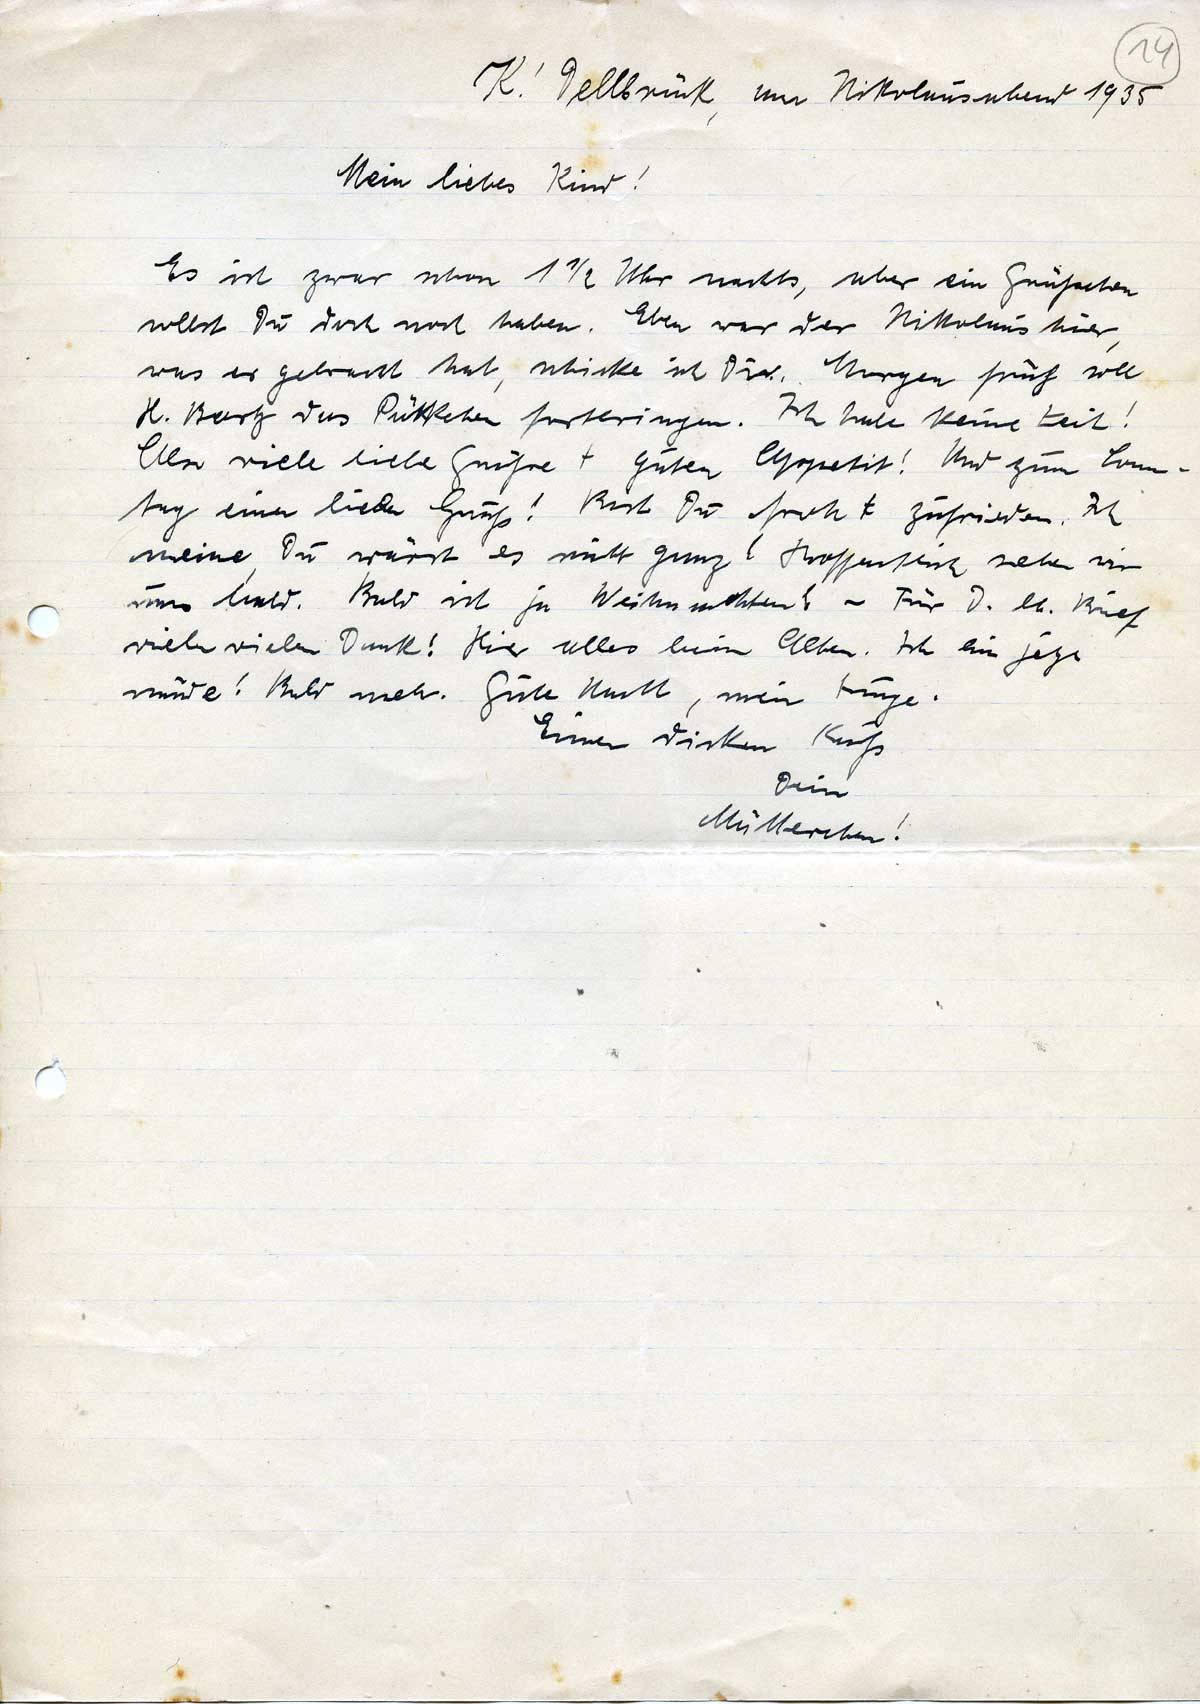 14
K! Dellbrück, am Nikolausabend 1935
Mein liebes Kind!
Es ist zwar schon 1 1/2 Uhr nachts, aber ein Grüßchen
sollst Du doch noch haben. Eben war der Nikolaus hier,
was er gebracht hat, schicke ich Dir. Morgen früh soll
H. Bartz das Päckchen fortbringen. Ich habe keine Zeit!
Also viele liebe Grüße + guten Appetit! Und zum Sonn-
tag einen lieben Gruß! Bist Du froh + zufrieden. Ich
meine, Du wärst es nicht ganz! Hoffentlich sehen wir
uns bald. Bald ist ja Weihnachten! – Für D. lb. Brief
vielen vielen Dank! Hier alles beim Alten. Ich bin jetzt
müde! Bald mehr. Gute Nacht, mein Junge.
Einen dicken Kuß
Dein
Mütterchen!